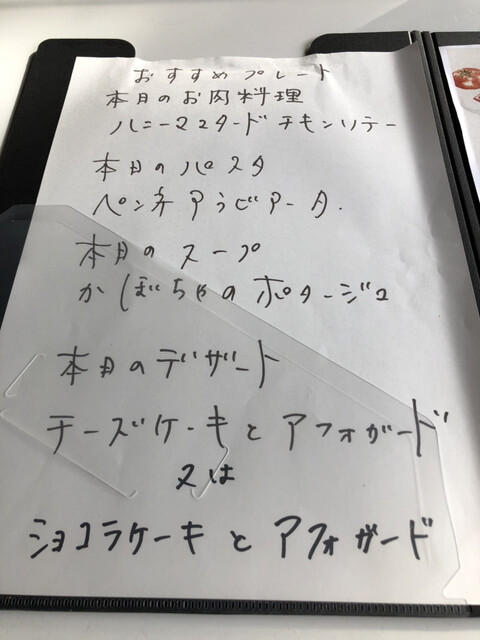 おすすめプレート
本日のお肉料理
ハニーマスタードチキンソテー
本日のパスタ
ペンネアラビアータ.
本日のスープ
かぼちゃのポタージュ
本日のデザート
チーズケーキとアフォガード
又は
ショコラケーキとアフォガード